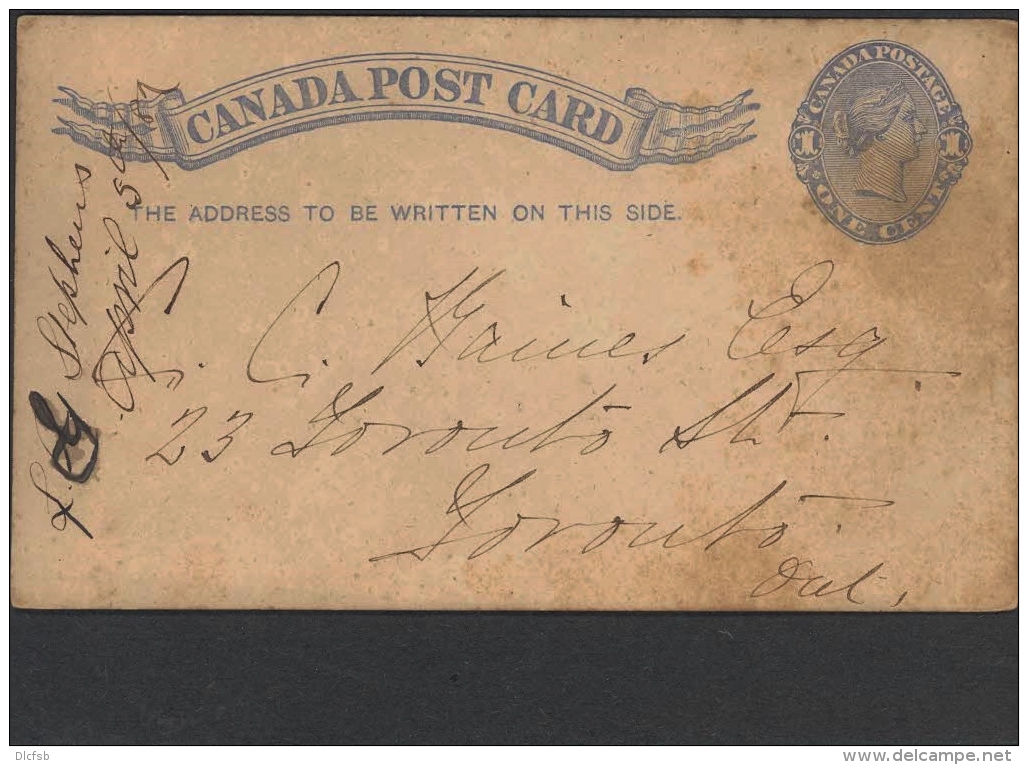 CANADA POST CARD
CANADA POSTAGE
1 1
ONE CENT
THE ADDRESS TO BE WRITTEN ON THIS SIDE.
C. Haines Esq
23 Toronto St.
Toronto
Ont.
Stephens
April 5th/87
Dlcfsb
www.delcampe.net